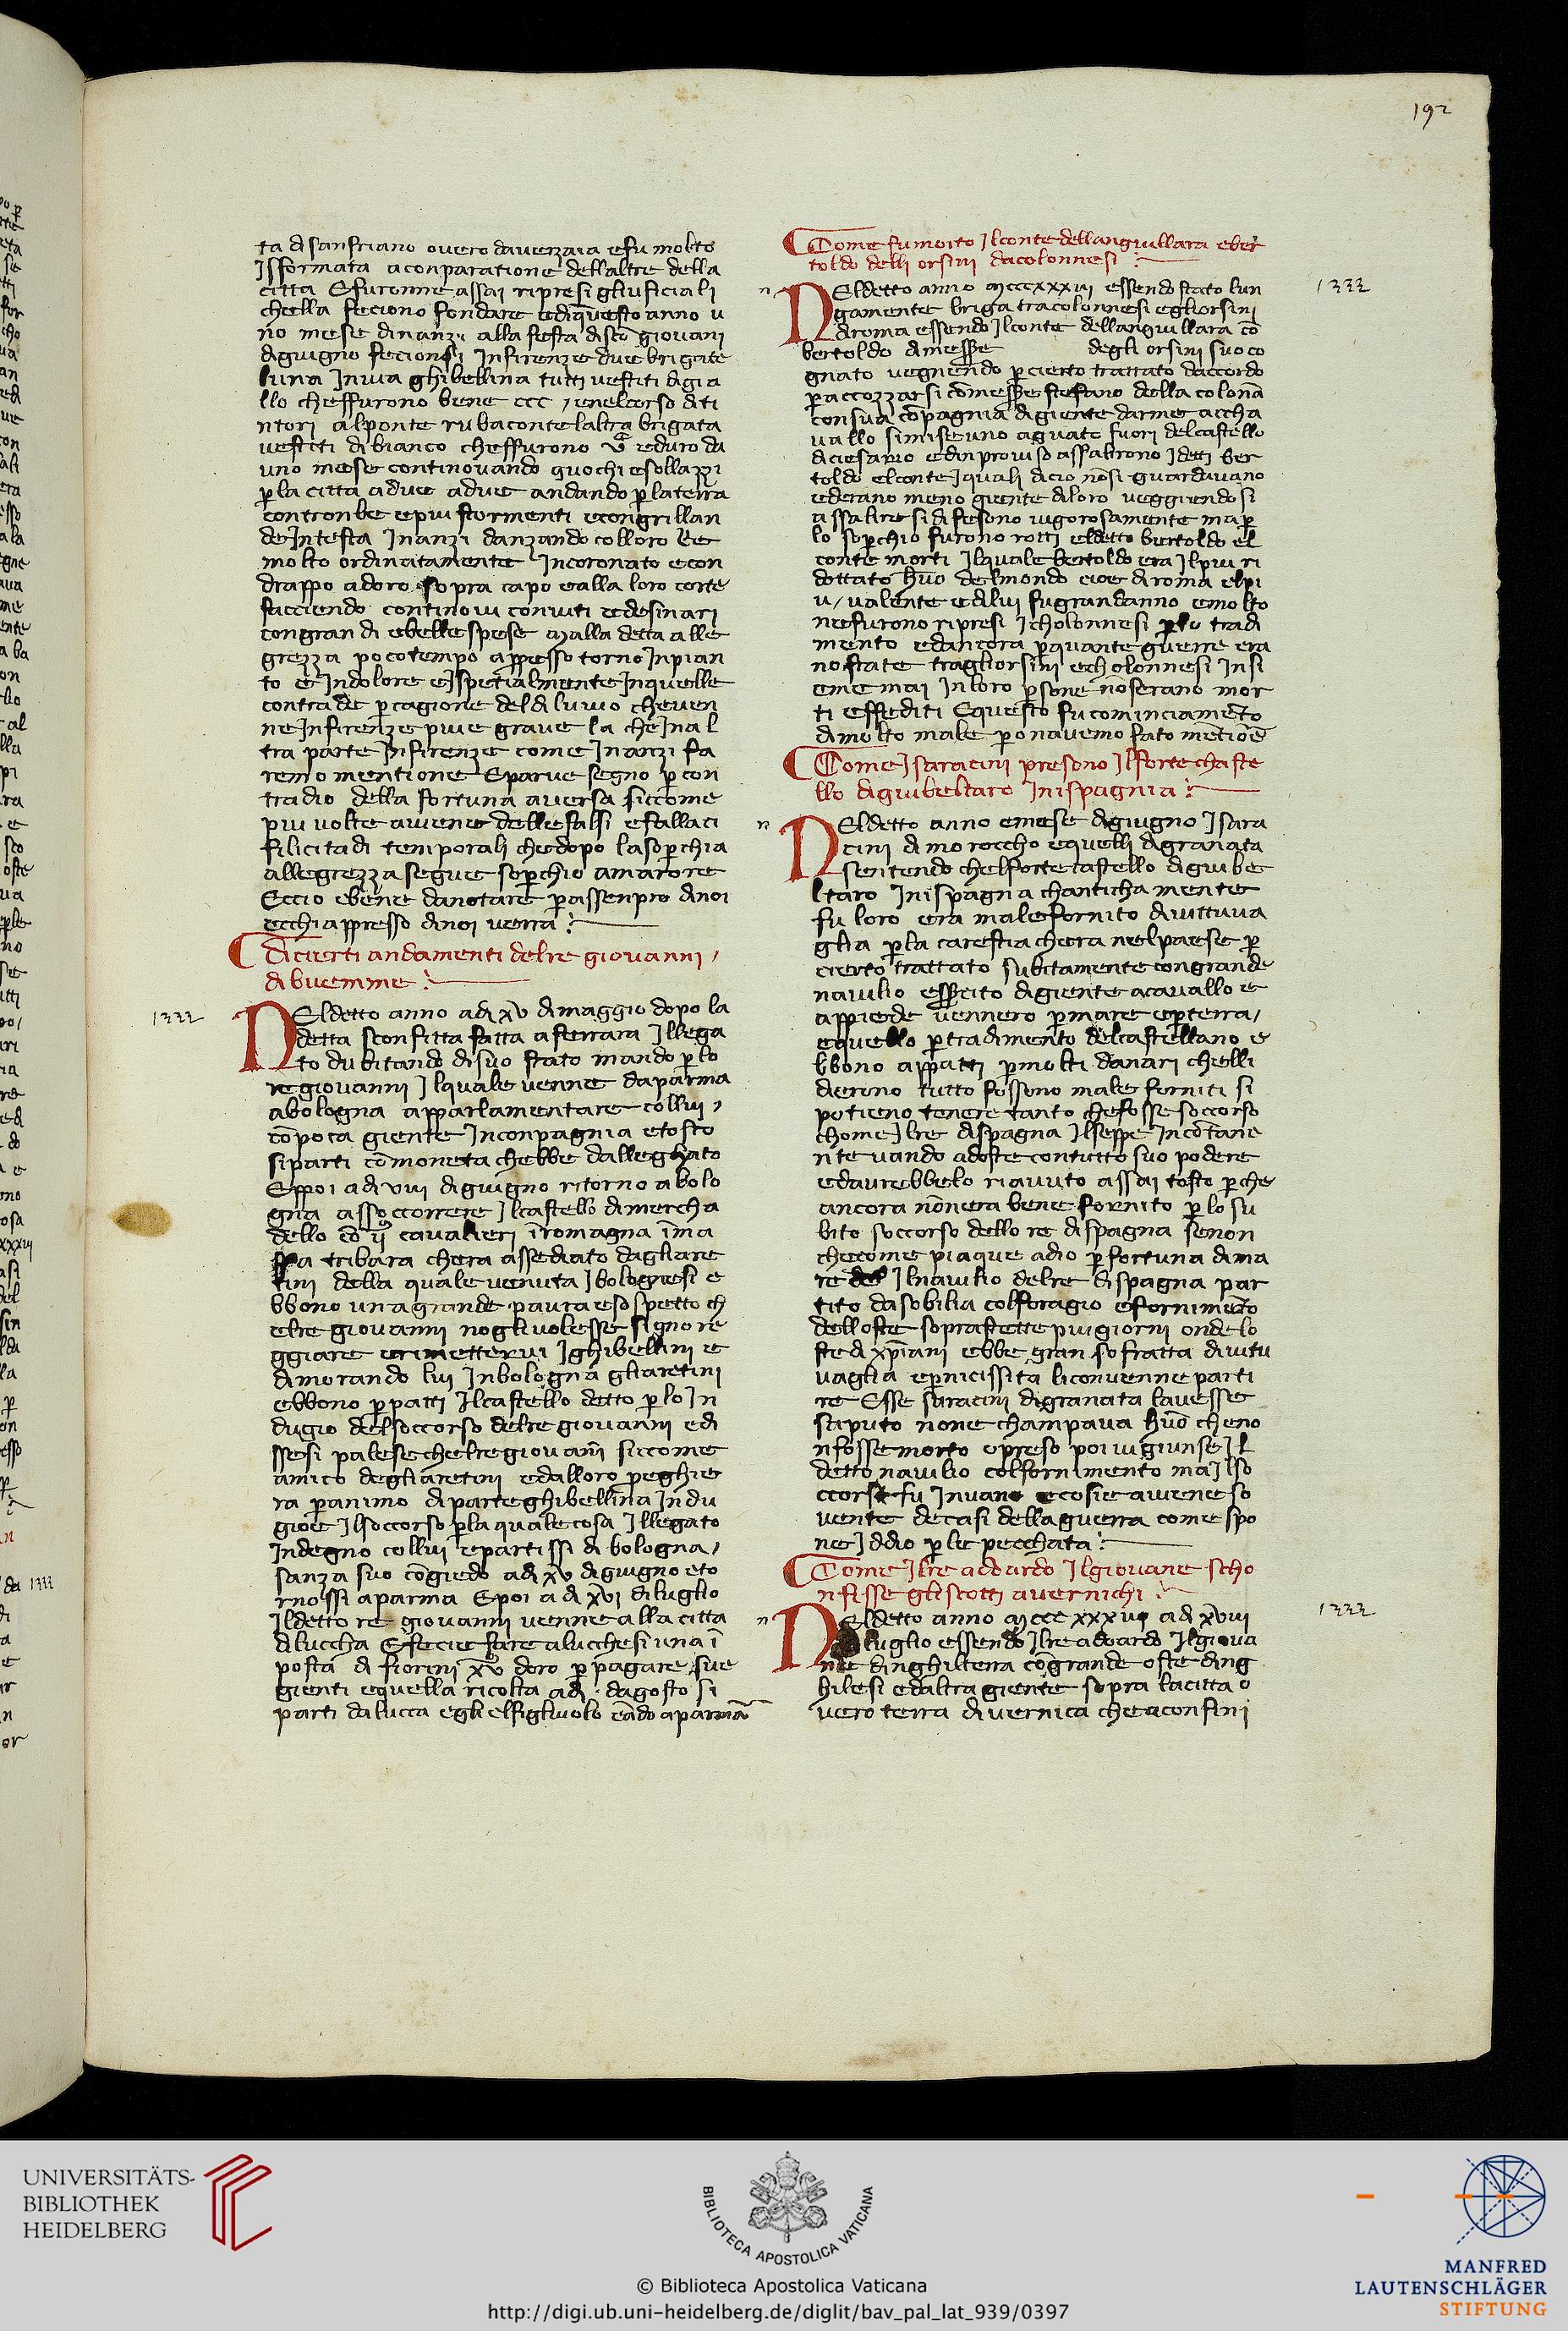 192
ta di sanfriano overo da verzaia e fu molto
Isformata a conparatione dell altre della
citta E furonne assai ripresi gli uficiali
che lla feciono fondare e di questo anno u
no mese dinanzi alla festa di sco giovani
di giugno feciorsi Infirenze due brigate
luna In via ghibellina tutti vestiti di gia
llo cheffurono bene ccc / e nel corso di ti
ntori al ponte rubaconte laltra brigata
vestiti di bianco cheffurono vc e duro da
uno mese continovando giuochi e sollazzi
p la citta a due a due andando p la terra
con tronbe e piu stormenti e con grillan
de In testa Inanzi danzando colloro Re
molto ordinatamente Incoronato e con
drappo adoro sopra capo e alla loro corte
facciendo continovi conviti e desinari
con grandi e belle spese Malla detta alle
grezza poco tempo appresso torno In pian
to e In dolore e Ispetialmente In quelle
contrade p cagione del diluvio che ven
ne In firenze piu e grave la che In al
tra parte In firenze come Inanzi fa
remo mentione E parve segno p con
tradio della fortuna aversa siccome
piu volte aviene delle falsi e fallaci
filicitadi temporali che dopo la sopchia
allegrezza segue sopchio amarore
E ccio e bene da notare p assenpro di noi
e cchi appresso di noi verra :
Di cierti andamenti del re giovanni /
di buemme :
1333
Nel detto anno a di xv di maggio dopo la
detta sconfitta fatta a ferrara Il lega
to dubitando di suo stato mando p lo
re giovanni Il quale venne da parma
a bologna a pparlamentare collui /
co poca giente In conpagnia e tosto
si parti co moneta chebbe dal leghato
E ppoi a di viii di giugno ritorno a bolo
gna a ssoccorrere Il castello di mercha
dello co ij cavalieri i romagna i ma
ssa tribara chera assediato dagli are
tini della quale venuta I bolognesi e
bbono una grande paura e sospetto ch
el re giovanni no gli volesse signore
ggiare e rimettervi I ghibellini e
dimorando lui In bologna gli aretini
ebbono p patti Il castello detto p lo In
dugio del soccorso del re giovanni e di
ssesi palese che l re giovani siccome
amico degli aretini e dalloro peghie
ra p animo di parte ghibellina Indu
gioe Il soccorso p la quale cosa Il legato
Indegno collui e partissi di bologna /
sanza suo cogiedo a di xv di giugno e to
rnossi a parma E poi a di xvj di luglio
Il detto re giovanni venne alla citta
di luccha E fecie fare a lucchesi una i
posta di fiorini xv doro p pagare sue
gienti e quella ricolta a di . dagosto si
parti da lucca egli el figliuolo e ado a parma
Come fu morto Il conte dell anguillara e ber
toldo delli orsini da colonnesi :
n
1333
Nel detto anno Mcccxxxiij essendo stato lun
gamente briga tra colonnesi e gli orsini
di roma essendo Il conte dell anguillara co
bertoldo di messe degli orsini suo co
gnato vegniendo p cierto trattato daccordo
p accozzarsi co messe stefano della colona
con sua copagnia di giente darme a ccha
vallo si mise uno aguato fuori del castello
di ciesario e dinproviso assalirono I detti ber
toldo el conte I quali di cio no si guardavano
ed erano meno giente di loro veggiendosi
assalire si difesono vigorosamente ma p
lo sopchio furono rotti el detto bertoldo el
conte morti Il quale bertoldo era Il piu ri
dottato huo del mondo cioe di roma el pi
u / valente e di lui fu gran danno e molto
ne furono ripresi I cholonnesi p lo tradi
mento ed ancora p quante guerre era
no state tra gli orsini e cholonnesi Insi
eme mai In loro psone no serano mor
ti e ffediti E questo fu cominciameto
di molto male p o navemo fato metioe
Come I saracini presono Il forte chaste
llo di giubeltaro In ispagnia :
n
Nel detto anno e mese di giugno I sara
cini di moroccho e quelli di granata
sentendo chel forte castello di giube
ltaro In ispagna ch anticha mente
fu loro era male fornito di vittuva
glia p la carestia chera nel paese p
cierto trattato subitamente con grande
navilio e sscito di giente a cavallo e
appiede vennero p mare e p terra /
e quello p tradimento del castellano e
bbono a ppatti p molti danari chelli
dierono tutto fossono male forniti si
potieno tenere tanto che fosse soccorso
chome Il re di spagna Il seppe Incotane
nte vando ad oste con tutto suo podere
ed avrebbelo riavuto assai tosto p che
ancora no nera bene fornito p lo su
bito soccorso dello re di spagna senon
che come piaque a dio p fortuna di ma
re Il navilio del re di spagna par
tito da sobilia col foragio e fornimeto
dell oste soprastette piu giorni onde lo
ste di xpiani ebbe gran sofratta di vitu
vaglia e p nicissita li convenne parti
re E sse saracini di granata lavesse
saputo none champava huo che no
n fosse morto o preso poi vi giunse Il
detto navilio col fornimento ma Il so
ccorso fu Invano e cosi e aviene so
vente de casi della guerra come spo
ne Iddio p le pecchata :
Come Il re adoardo Il giovane scho
nfisse gli scotti a vernichi :
n
1333
Nel detto anno Mcccxxxiij a di xviiij
di luglio essendo Il re adoardo Il giova
ne dinghilterra co grande oste ding
hilesi e daltra giente sopra la citta o
vero terra di vernica che a confini
UNIVERSITÄTS-
BIBLIOTHEK
HEIDELBERG
BIBLIOTECA APOSTOLICA VATICANA
© Biblioteca Apostolica Vaticana
http://digi.ub.uni-heidelberg.de/diglit/bav_pal_lat_939/0397
MANFRED
LAUTENSCHLÄGER
STIFTUNG